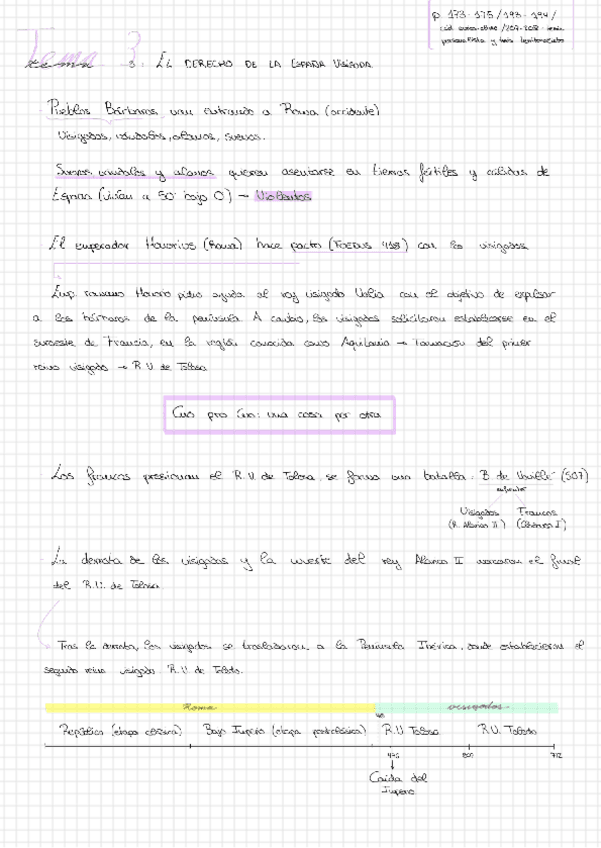 p 173-175 / 193-194 /
Tema 3
tema 3: EL DERECHO DE LA ESPAÑA VISIGODA
Pueblos Bárbaros van entrando a Roma (occidente)
Visigodos, vándalos, alanos, suevos.
Suevos vándalos y alanos quieren asentarse en tierras fértiles y cálidas de
España (vivían a 50 bajo 0) → Violentos
El emperador Honorius (Roma) hace pacto (Foedus 418) con los visigodos
Emp. romano Honorio pidió ayuda al rey visigodo Valia con el objetivo de expulsar
a los bárbaros de la península. A cambio, los visigodos solicitaron establecerse en el
suroeste de Francia, en la región conocida como Aquitania → Formación del primer
reino visigodo → R.V. de Tolosa
Cuis pro cuo: una cosa por otra
Los francos presionan el R.V. de Tolosa, se forma una batalla: B de Vouillé (507)
Visigodos Francos
(R. Alarico II) (Clodoveo I)
La derrota de los visigodos y la muerte del rey Alarico II marcaron el final
del R.V. de Tolosa
Tras la derrota, los visigodos se trasladaron a la Península Ibérica, donde establecieron el
segundo reino visigodo: R.V. de Toledo.
Roma visigodos
República (etapa clásica) Bajo Imperio (etapa postclásica) R.V. Tolosa R.V. Toledo
476 712
Caída del
Imperio